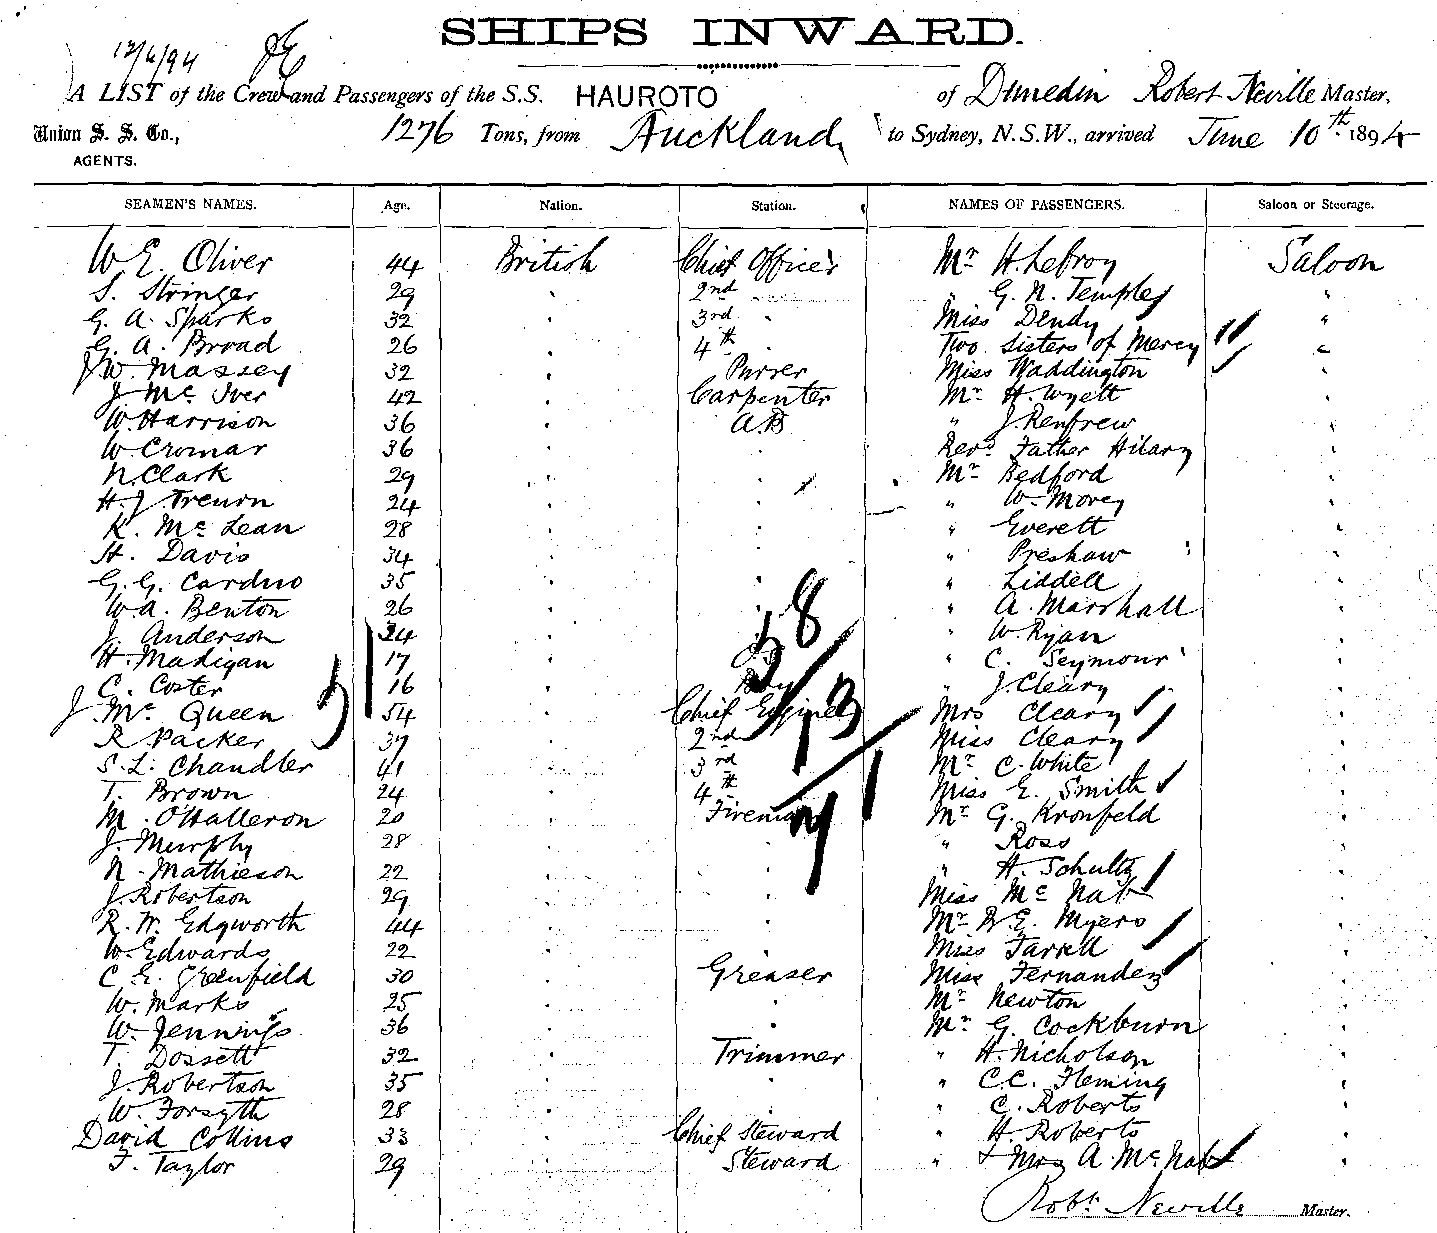 SHIPS INWARD.
12/6/94
A LIST of the Crew and Passengers of the S.S. HAUROTO of Dunedin Robert Neville Master,
Union S. S. Co., 1276 Tons, from Auckland, to Sydney, N.S.W., arrived June 10th 1894
AGENTS.
SEAMEN'S NAMES. Age. Nation. Station. NAMES OF PASSENGERS. Saloon or Steerage.
W E. Oliver 44 British Chief Officer Mr H. Lefroy Saloon
S. Stringer 29 " 2nd " " G. N. Temple "
G. A. Sparks 32 " 3rd " Miss Dendy "
G. A. Broad 26 " 4th " Two Sisters of Mercy "
J W. Massey 32 " Purser Miss Waddington "
J Mc Iver 42 " Carpenter Mr H. Wyett "
W. Harrison 36 " A.B " J. Renfrew "
W Cromar 36 " " Revd Father Hilary "
N. Clark 29 " " Mr Bedford "
H. J. Treurn 24 " " " W. Morey "
K. Mc Lean 28 " " " Everett "
H. Davis 34 " " " Preshaw "
G. G. Cardno 35 " " " Liddell "
W. A. Benton 26 " " " A. Marshall "
J. Anderson 24 " " W. Ryan "
H. Madigan 17 " " C. Seymour "
C. Coster 16 " Boy " J. Cleary "
J. Mc Queen 54 " Chief Engineer Mrs Cleary "
R. Packer 37 " 2nd " Miss Cleary "
S. L. Chandler 41 " 3rd " Mr C. White "
T. Brown 24 " 4th " Miss E. Smith "
M. O'Halleron 20 " Fireman Mr G. Kronfeld "
J. Murphy 28 " " " Ross "
N. Mathieson 22 " " " H. Schultz "
J. Robertson 29 " " Miss Mc Nab "
R. W. Edgworth 44 " " Mr B. E. Myers "
W. Edwards 22 " " Miss Farrell "
C. E. Greenfield 30 " Greaser Miss Fernandez "
W. Marks 25 " " Mr Newton "
W. Jennings 36 " " Mr G. Cockburn "
T. Dossett 32 " Trimmer " H. Nicholson "
J. Robertson 35 " " " C.C. Fleming "
W. Forsyth 28 " " " C. Roberts "
David Collins 33 " Chief Steward " H. Roberts "
F. Taylor 29 " Steward " & Mrs A. Mc Nab "
58
13
71
Robt Neville Master.